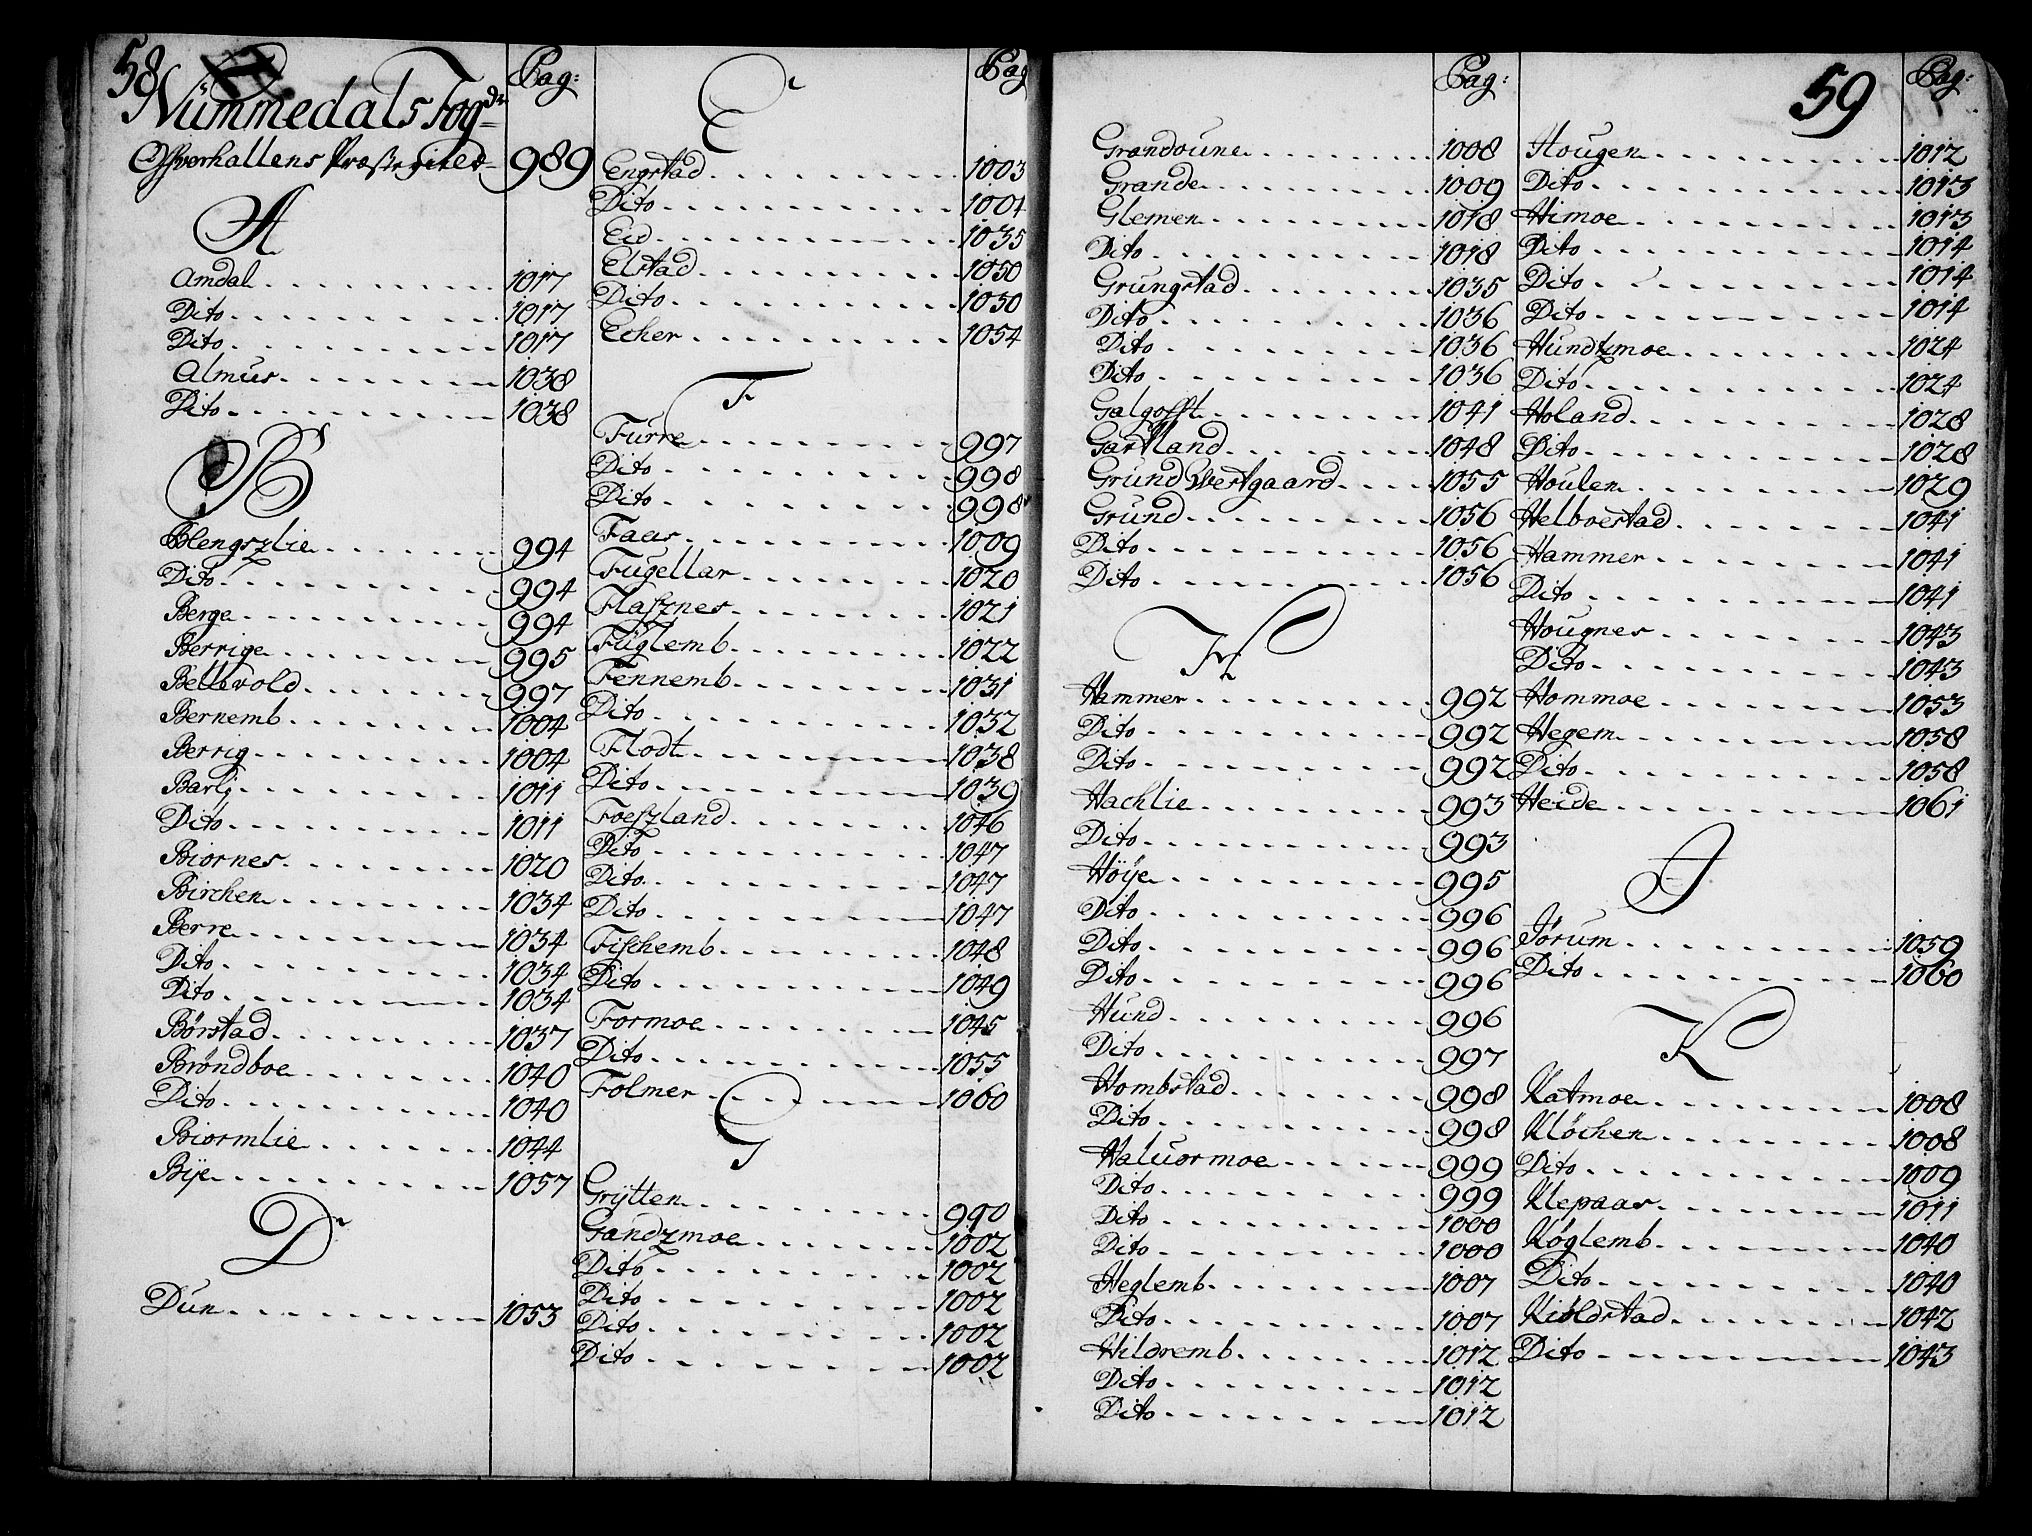 58
Nümmedals Fog dr
Pag:
Offverhallens Præste gield 989
A
Amdal 1017
Dito 1017
Dito 1017
Almus 1038
Dito 1038
B
Blengszlie 994
Dito 994
Berge 994
Berrige 995
Bettevold 997
Bernemb 1004
Berrig 1004
Barlj 1011
Dito 1011
Biørnes 1020
Birchen 1034
Berre 1034
Dito 1034
Dito 1034
Børstad 1037
Brøndboe 1040
Dito 1040
Biørmlie 1044
Bije 1057
D
Dun 1053
Pag
E
Engstad 1003
Dito 1004
Eid 1035
Elstad 1050
Dito 1050
Echer 1054
F
Furre 997
Dito 998
Dito 998
Faas 1009
Fugellar 1020
Flasznes 1021
Füglemb 1022
Fennemb 1031
Dito 1032
Flodt 1038
Dito 1039
Foeszland 1046
Dito 1047
Dito 1047
Dito 1047
Fischemb 1048
Dito 1049
Formoe 1045
Dito 1055
Folmer 1060
G
Grÿtten 990
Gandzmoe 1002
Dito 1002
Dito 1002
Dito 1002
Dito 1002
Pag:
Grandoune 1008
Grande 1009
Glemen 1018
Dito 1018
Grungstad 1035
Dito 1036
Dito 1036
Dito 1036
Galgofft 1041
Gartland 1048
Grund Westgaard 1055
Grund 1056
Dito 1056
Dito 1056
H
Hammer 992
Dito 992
Dito 992
Hachlie 993
Dito 993
Höÿe 995
Dito 996
Dito 996
Dito 996
Hund 996
Dito 997
Hombstad 998
Dito 998
Haluormoe 999
Dito 999
Dito 1000
Dito 1000
Heglemb 1007
Dito 1007
Hildremb 1012
Dito 1012
Dito 1012
59
Pag:
Hougen 1012
Dito 1013
Himoe 1013
Dito 1014
Dito 1014
Dito 1014
Hundtzmoe 1024
Dito 1024
Holand 1028
Dito 1028
Houlen 1029
Helboestad 1041
Hammer 1041
Dito 1041
Hougnes 1043
Dito 1043
Hommoe 1053
Hegem 1058
Dito 1058
Heide 1061
J
Jørum 1059
Dito 1060
K
Katmoe 1008
Klöchen 1008
Dito 1009
Klepaas 1011
Køglemb 1040
Dito 1040
Kiöldstad 1042
Dito 1043